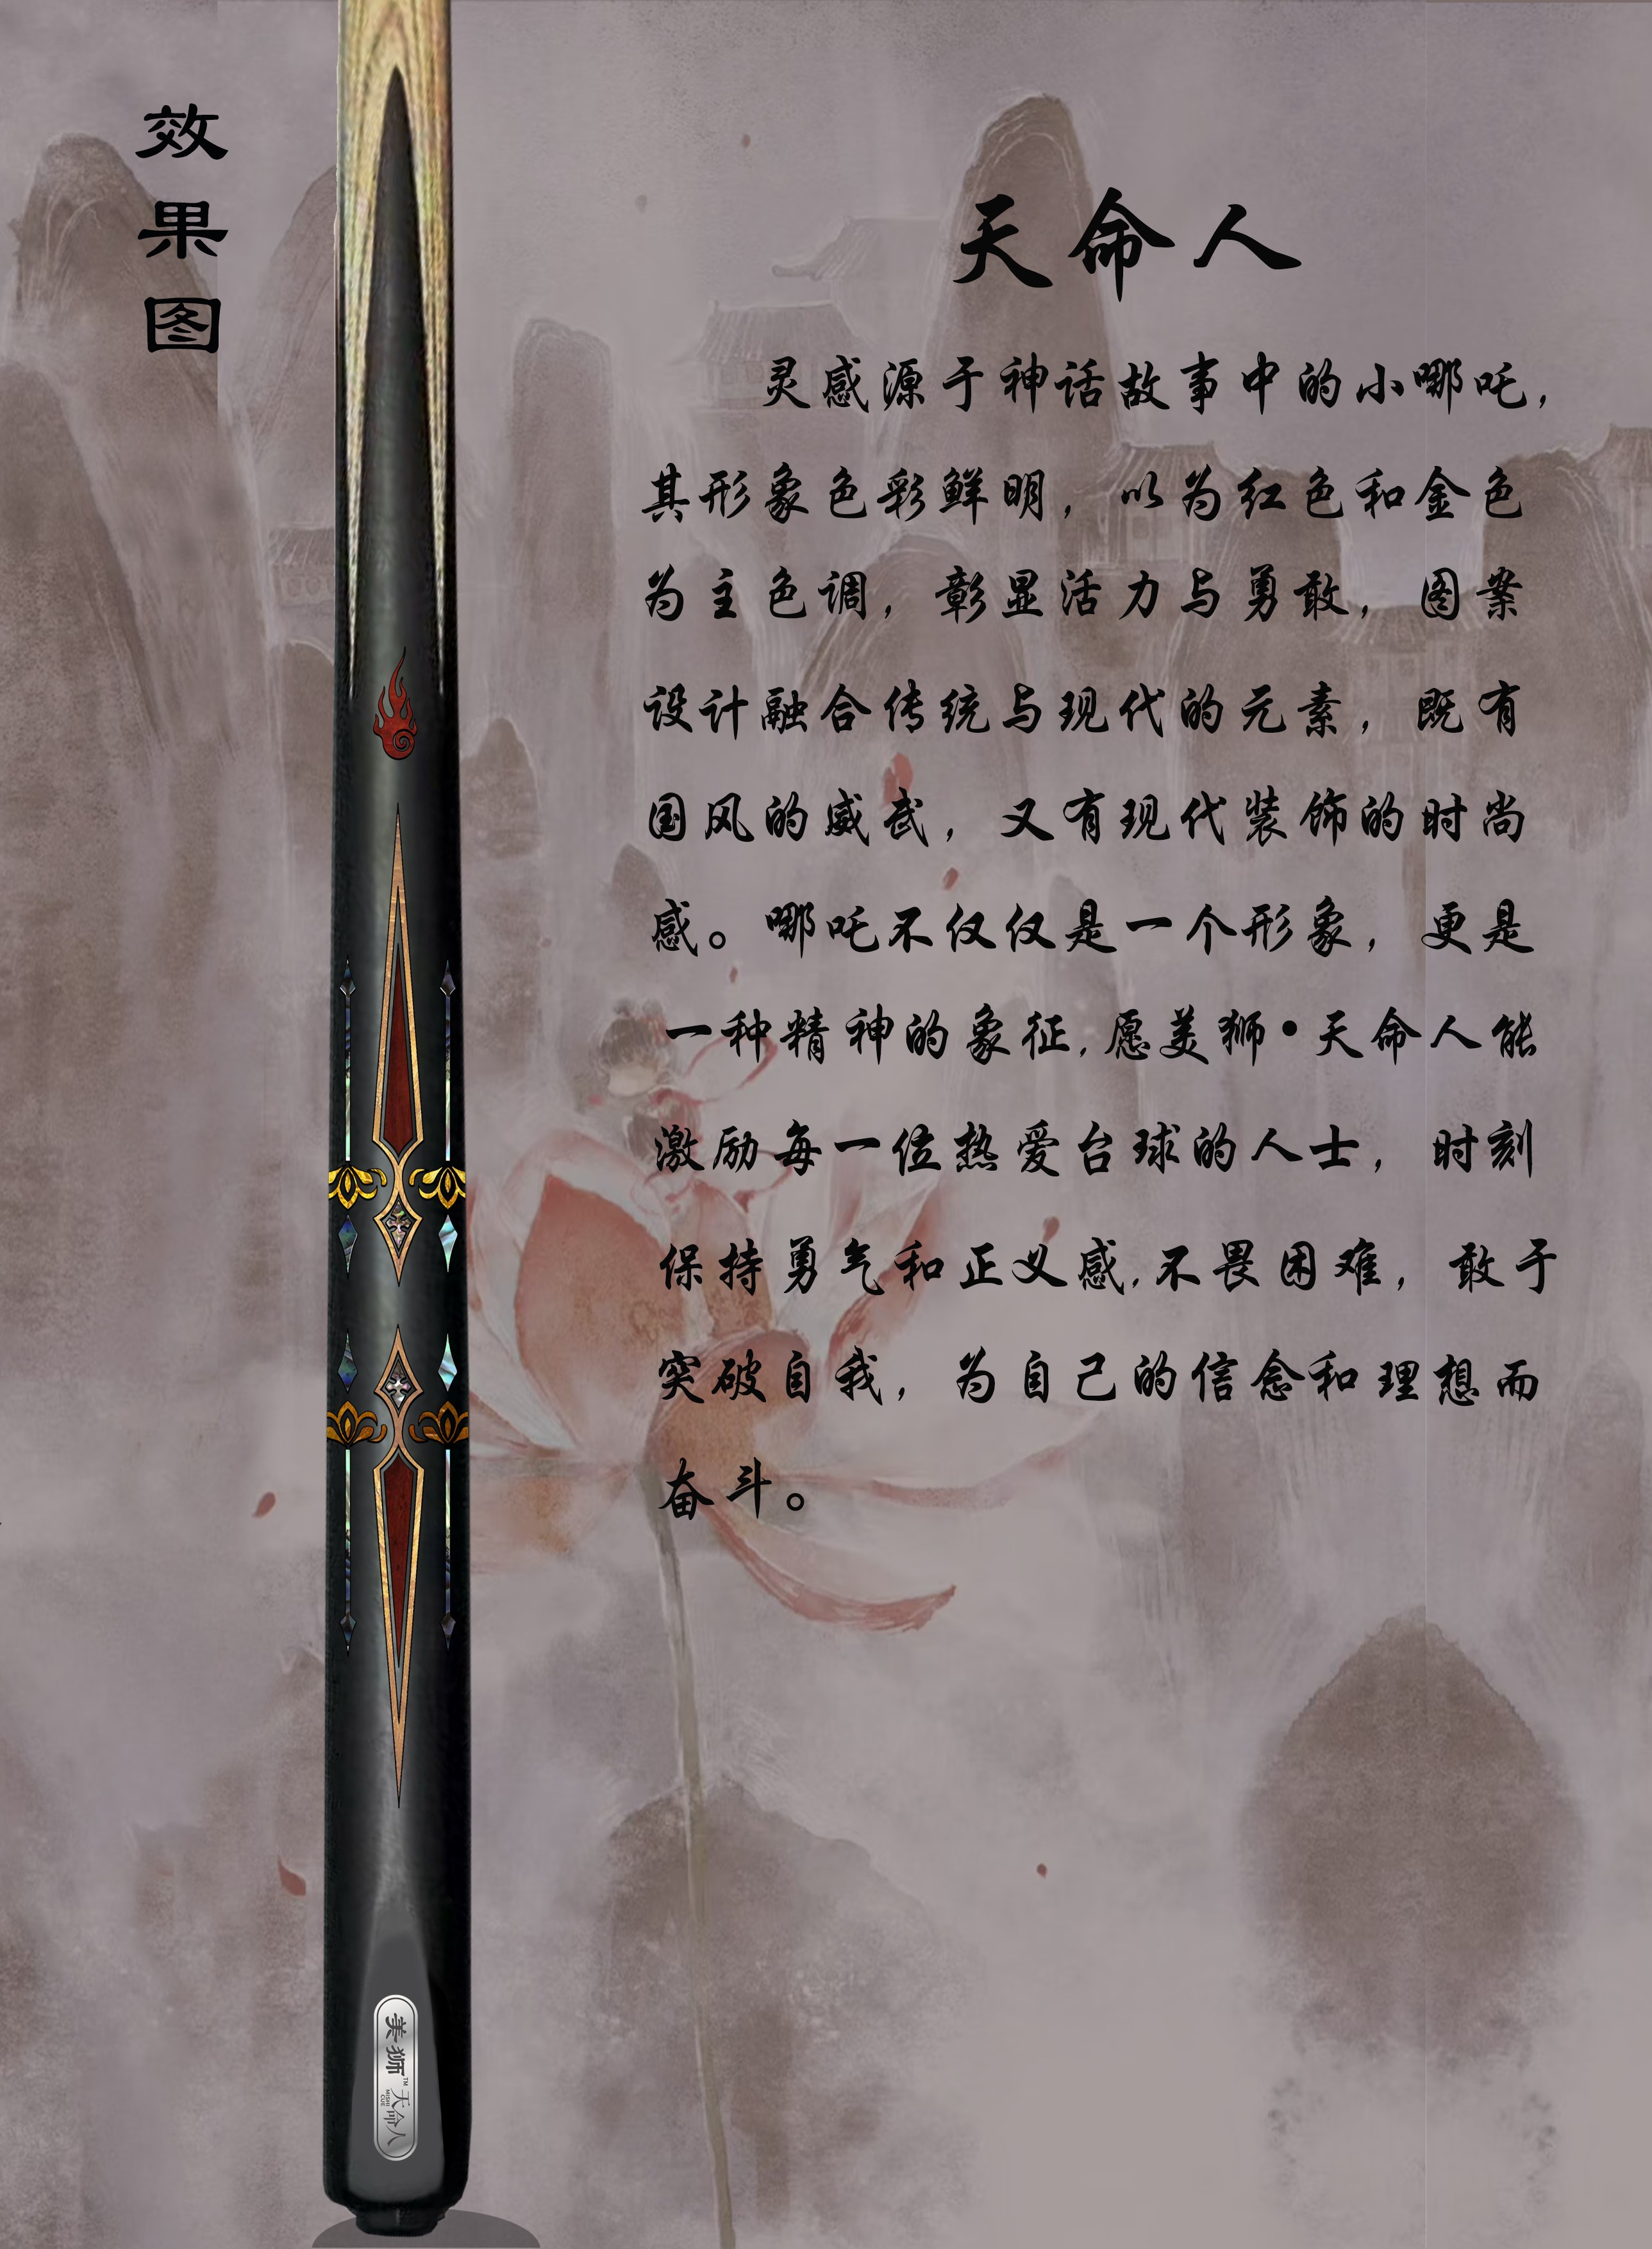 效果图
天命人
灵感源于神话故事中的小哪吒,
其形象色彩鲜明，以为红色和金色
为主色调，彰显活力与勇敢，图案
设计融合传统与现代的元素，既有
国风的威武，又有现代装饰的时尚
感。哪吒不仅仅是一个形象，更是
一种精神的象征,愿美狮•天命人能
激励每一位热爱台球的人士，时刻
保持勇气和正义感,不畏困难，敢于
突破自我，为自己的信念和理想而
奋斗。
美狮™ 天命人
MISHI CUE